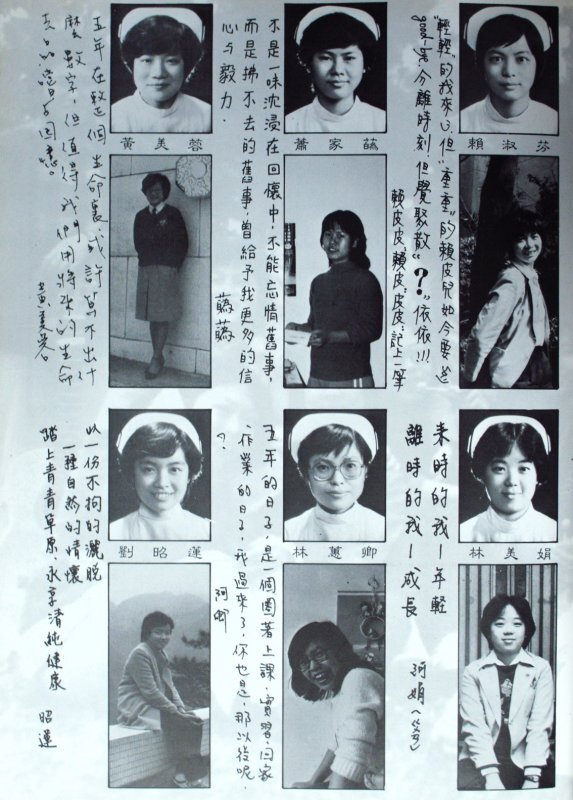 賴淑芬
"輕輕"的我來了,但"重重"的賴皮兒如今要道
good-bye.今離時刻.但覺聚散"?"依依!!!
賴皮皮.賴皮.皮皮:記上一筆
蕭家
不是一味沈浸在回懷中,不能忘情舊事,
而是拂不去的舊事,曾給予我更多的信
心与毅力.
黃美蓉
五年在整個生命裏,或許算不出什
麼數字,但值得我們用將來的生命
去品嚐与回憶。
黃美蓉
林美娟
來時的我—年輕
離時的我—成長
阿娟
林蕙卿
五年的日子,是一個圈著上課.實習.回家
作業的日子,我過來了,你也是,那以後呢.
?
阿卿
劉昭蓮
以一份不拘的灑脫
一種自然的情懷
踏上青青草原.永享清純健康
昭蓮